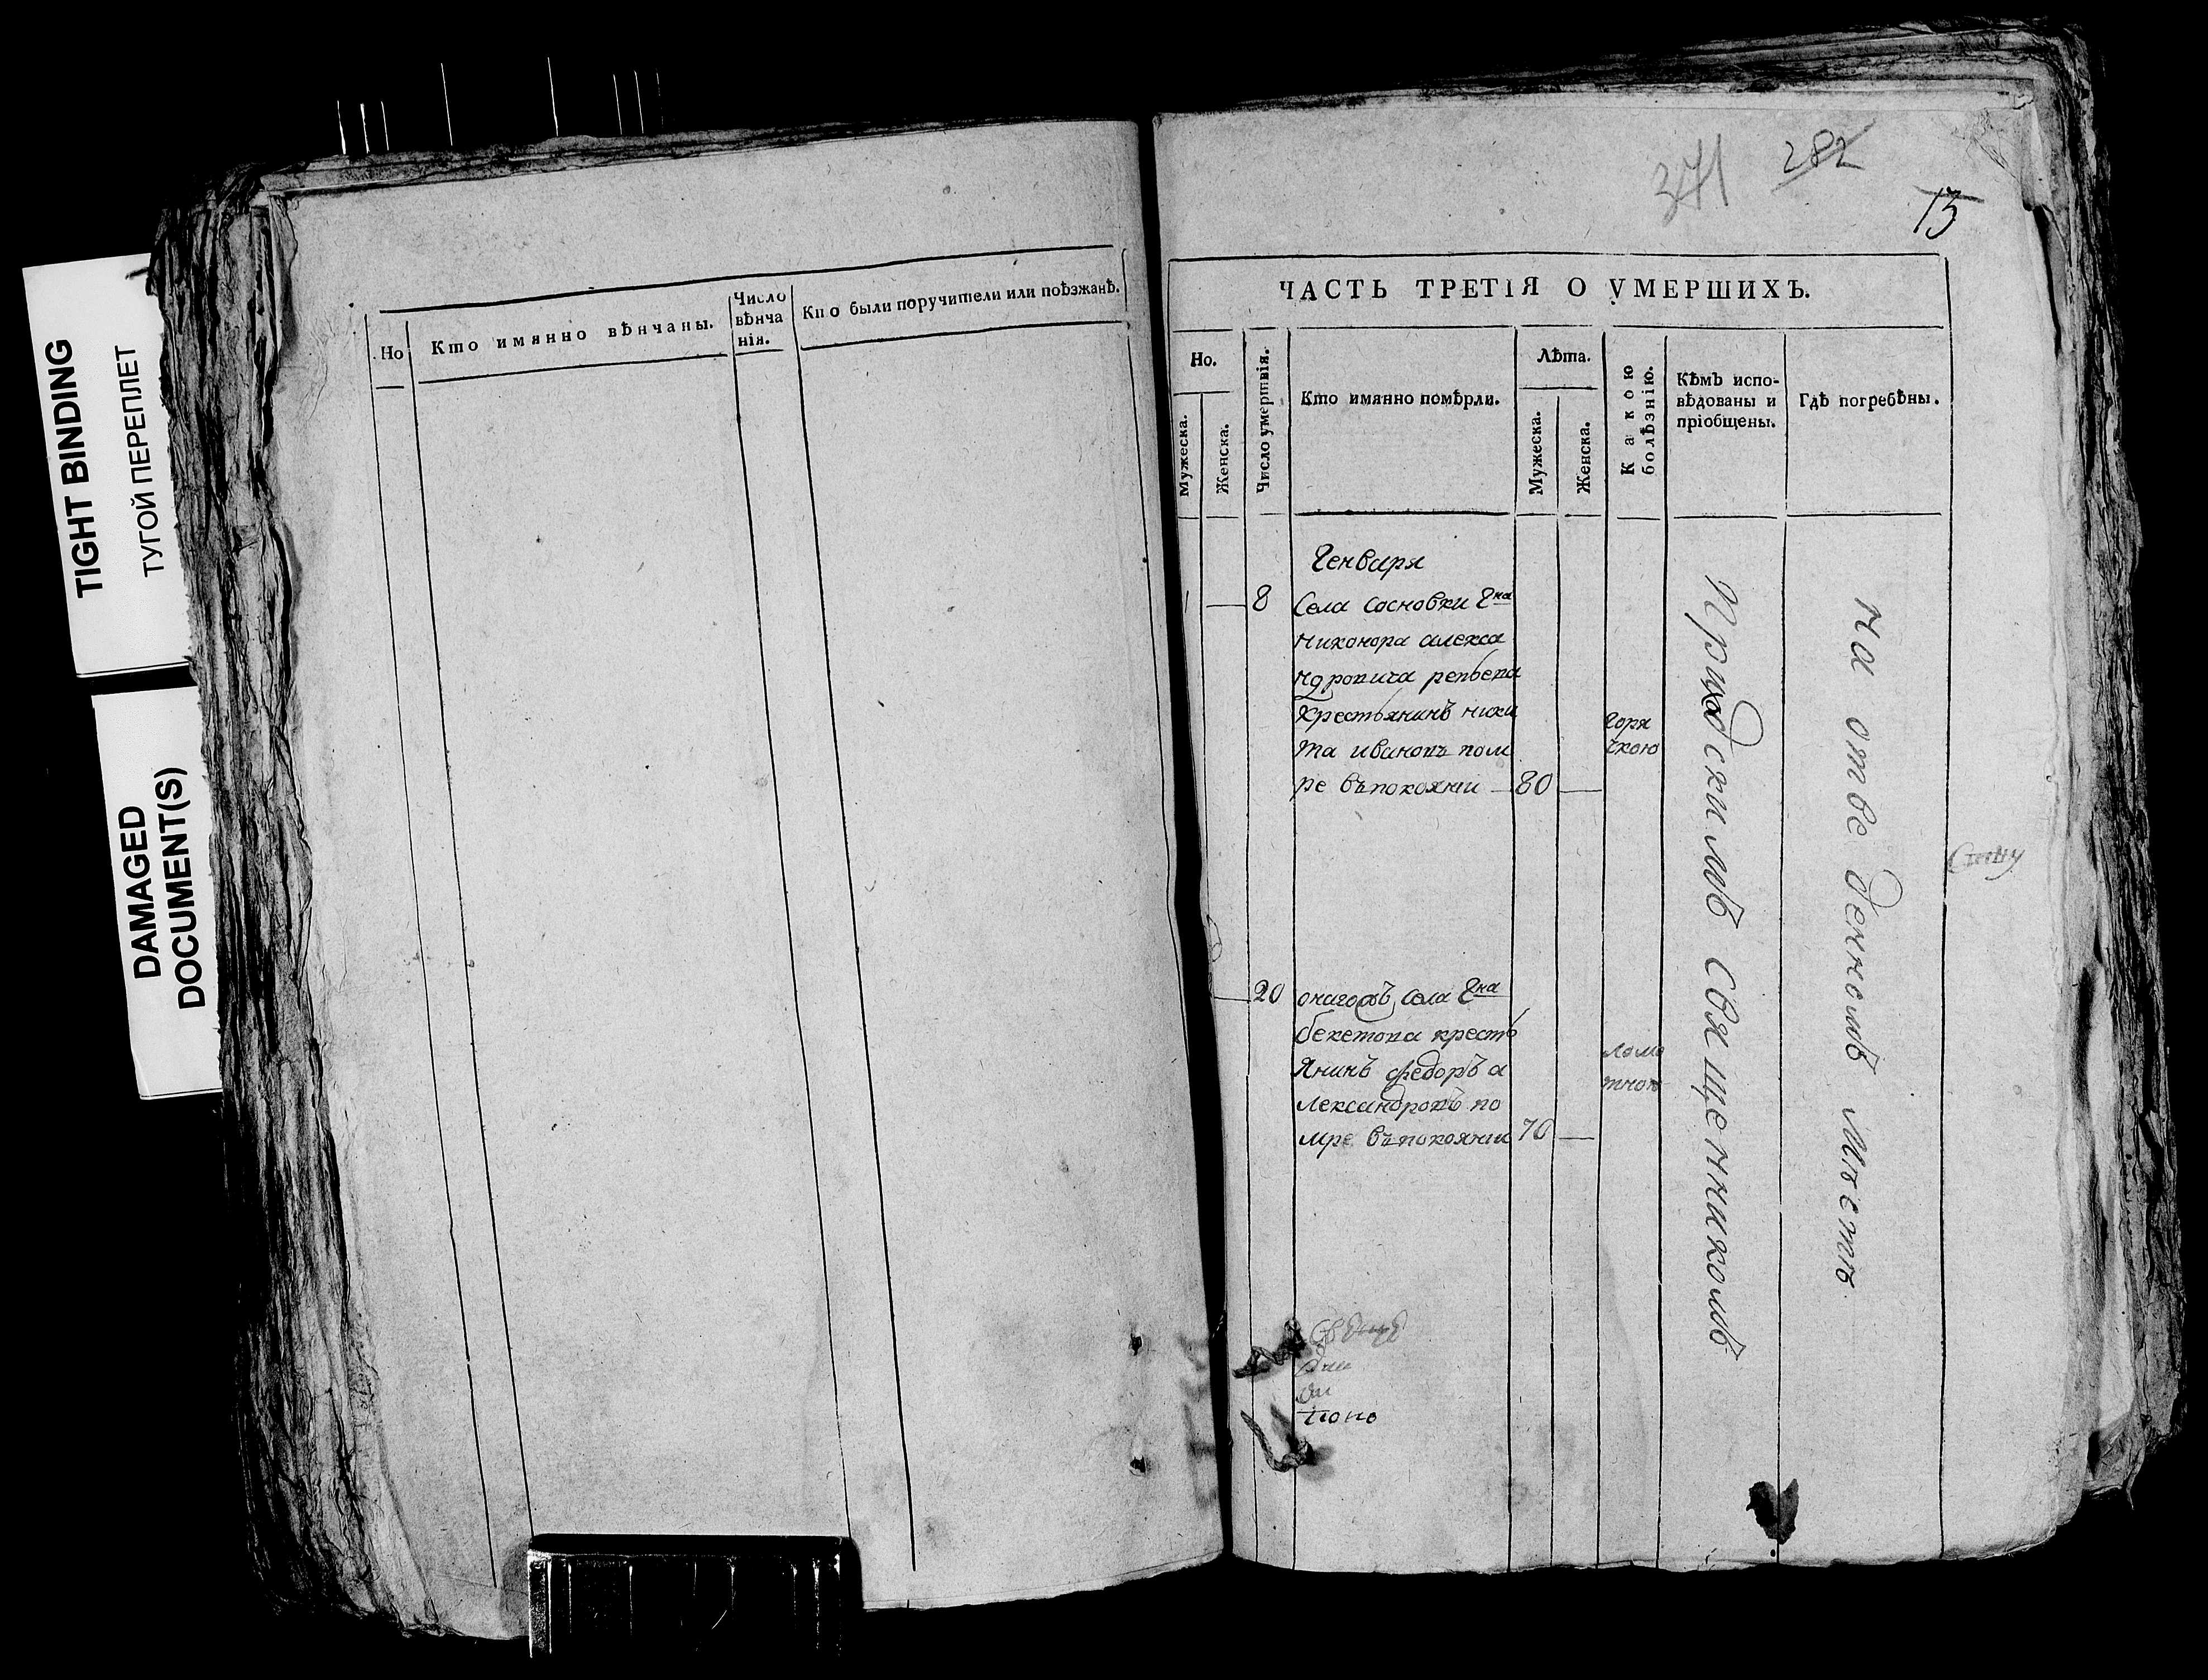 TIGHT BINDING
ТУГОЙ ПЕРЕПЛЕТ
DAMAGED
DOCUMENT(S)
Но
Кто имянно вѣнчаны.
Число
вѣнча
нія.
Кто были поручители или поѣзжанѣ.
371
282
13
ЧАСТЬ ТРЕТІЯ О УМЕРШИХЪ.
Но.
Мужеска.
Женска.
Число умертвія.
Кто имянно помѣрли.
Лѣта.
Мужеска.
Женска.
Какою
болѣзнію.
Кѣмъ испо-
вѣдованы и
пріобщены.
Гдѣ погребѣны.
Генваря
1 — 8 Села Сосновки Гна
никонора алекса
ндровича репьева
крестьянинъ ники
та ивановъ пом
ре въпокояніи — 80 —
горя
чкою
— 20 оногожъ села Гна
бекетова кресть
янинъ федоръ а
лександровъ по
мре въпокояніи 70 —
ломо
тною
Приходскимъ священникомъ
на отведенномъ мѣстѣ